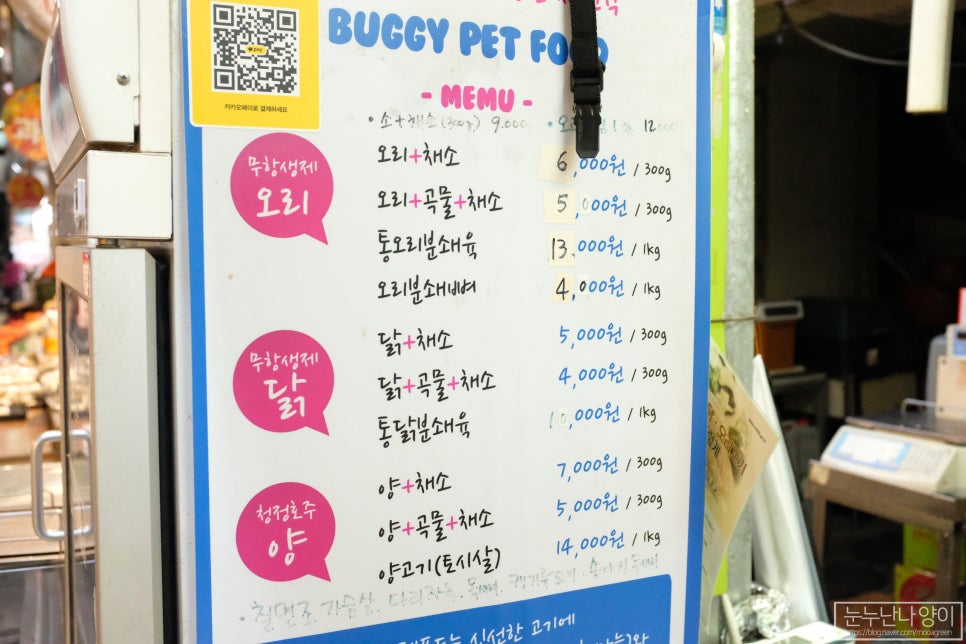 pay
카카오페이로 결제하세요
BUGGY PET FOOD
- MEMU -
• 소+채소 (300g) 9.000
12.000
무항생제
오리
오리+채소 6,000원 / 300g
오리+곡물+채소 5,000원 / 300g
통오리분쇄육 13,000원 / 1kg
오리분쇄뼈 4,000원 / 1kg
무항생제
닭
닭+채소 5,000원 / 300g
닭+곡물+채소 4,000원 / 300g
통닭분쇄육 10,000원 / 1kg
청정호주
양
양+채소 7,000원 / 300g
양+곡물+채소 5,000원 / 300g
양고기(토시살) 14,000원 / 1kg
• 칠면조 가슴살.
신선한 고기에
눈누난나양이
https://blog.naver.com/mooagreen